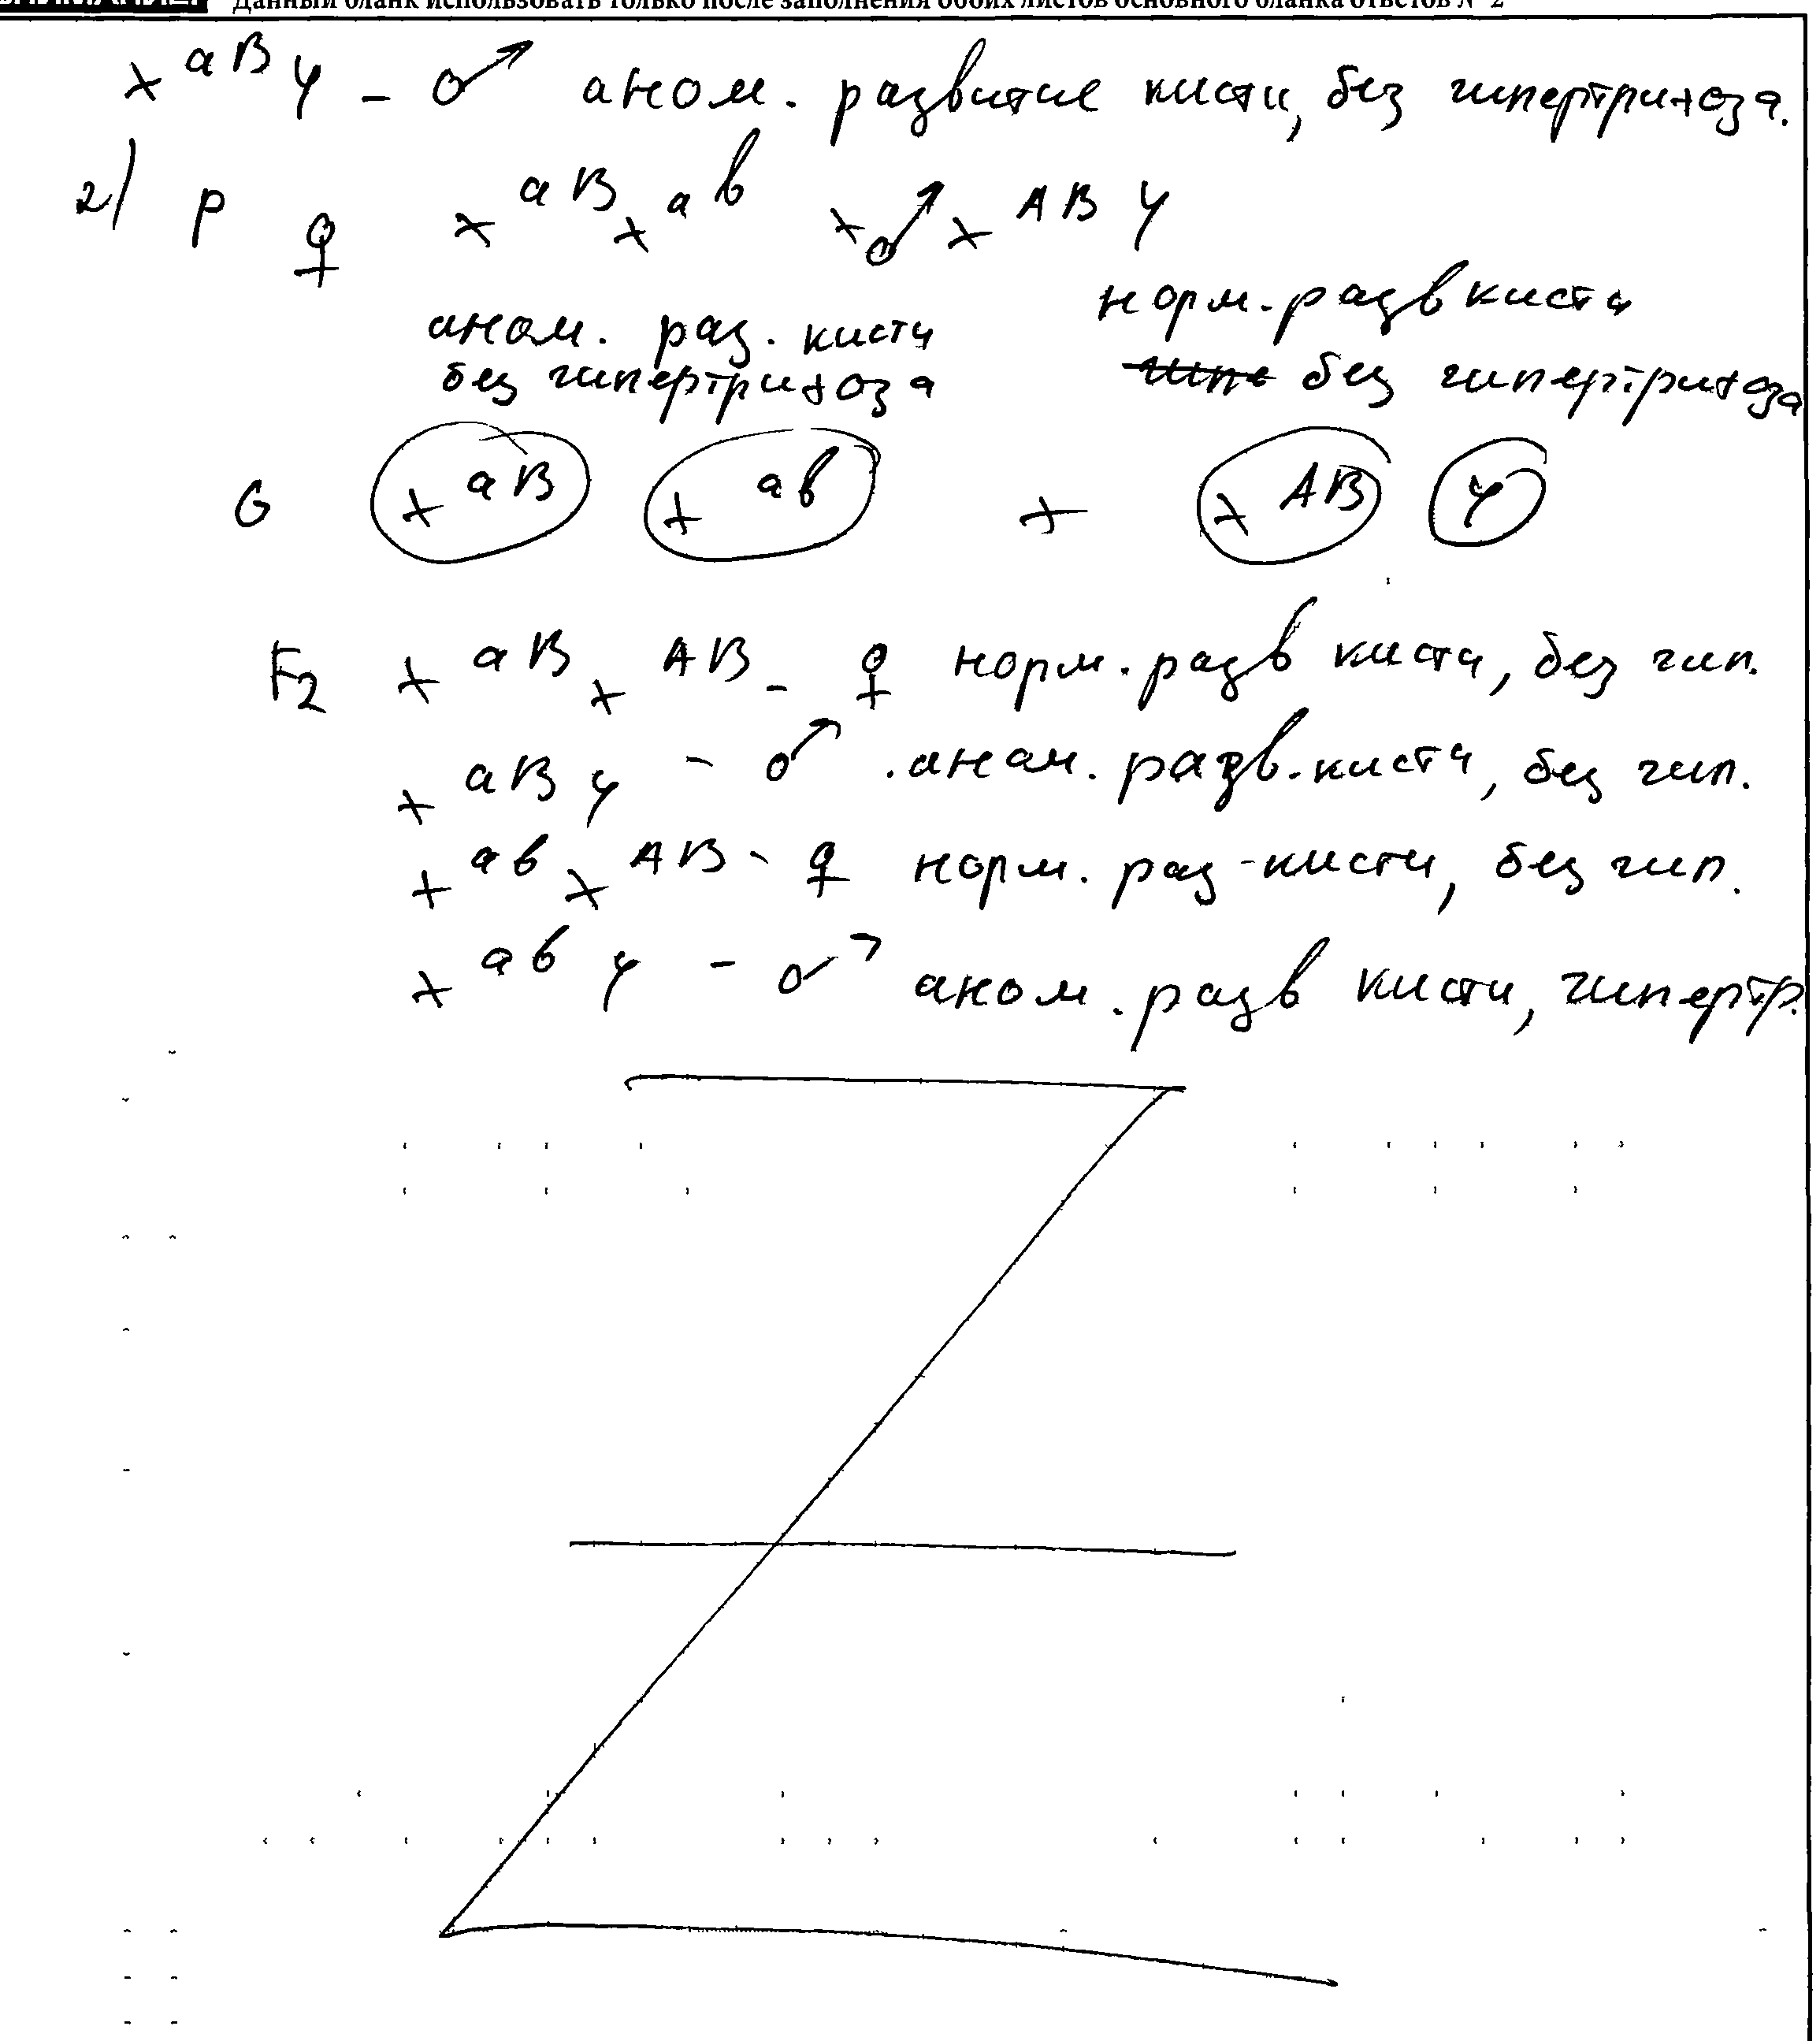 Данный бланк использовать только после заполнения обоих листов основного бланка ответов № 2
X^aB Y – ♂ аном. развитие кисти, без гипертрихоза.
2) P ♀ X^aB X^ab × ♂ X^AB Y
норм. разв кисти
аном. раз. кисти
без гипертрихоза без гипертрихоза
G X^aB X^ab × X^AB Y
F2 X^aB X^AB – ♀ норм. разв кисти, без гип.
X^aB Y – ♂ .аном. разв. кисти, без гип.
X^ab X^AB – ♀ норм. раз-кисти, без гип.
X^ab Y – ♂ аном. разв кисти, гипертр.